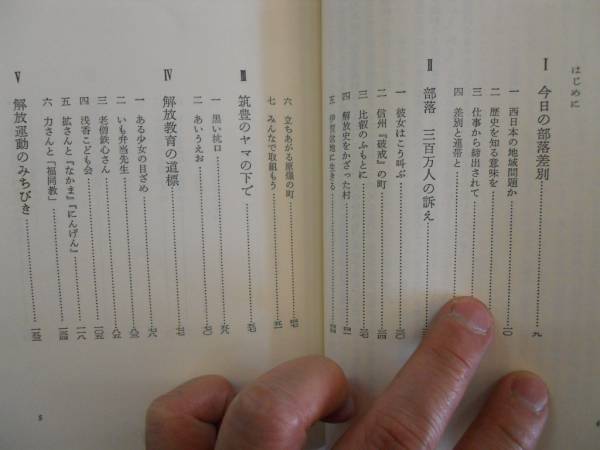 はじめに
Ⅰ 今日の部落差別……九
一 西日本の地域問題か……一〇
二 歴史を知る意味を
三 仕事から締出されて
四 差別と連帯と
Ⅱ 部落 三百万人の訴え
一 彼女はこう叫ぶ……三〇
二 信州『破戒』の町……三四
三 比叡のふもとに……三七
四 解放史をかざった村……四一
五 伊賀盆地に生きる……四四
六 立ちあがる原爆の町……四七
七 みんなで取組もう……五一
Ⅲ 筑豊のヤマの下で……五七
一 黒い坑口……五八
二 あいうえお……七〇
Ⅳ 解放教育の道標……七七
一 ある少女の目ざめ……七八
二 いも弁当先生……八六
三 老僧鉄心さん……一〇五
四 浅香こども会……一一八
五 拡さんと『なかま』『にんげん』……一三四
六 力さんと「福同教」……一四五
Ⅴ 解放運動のみちびき
5